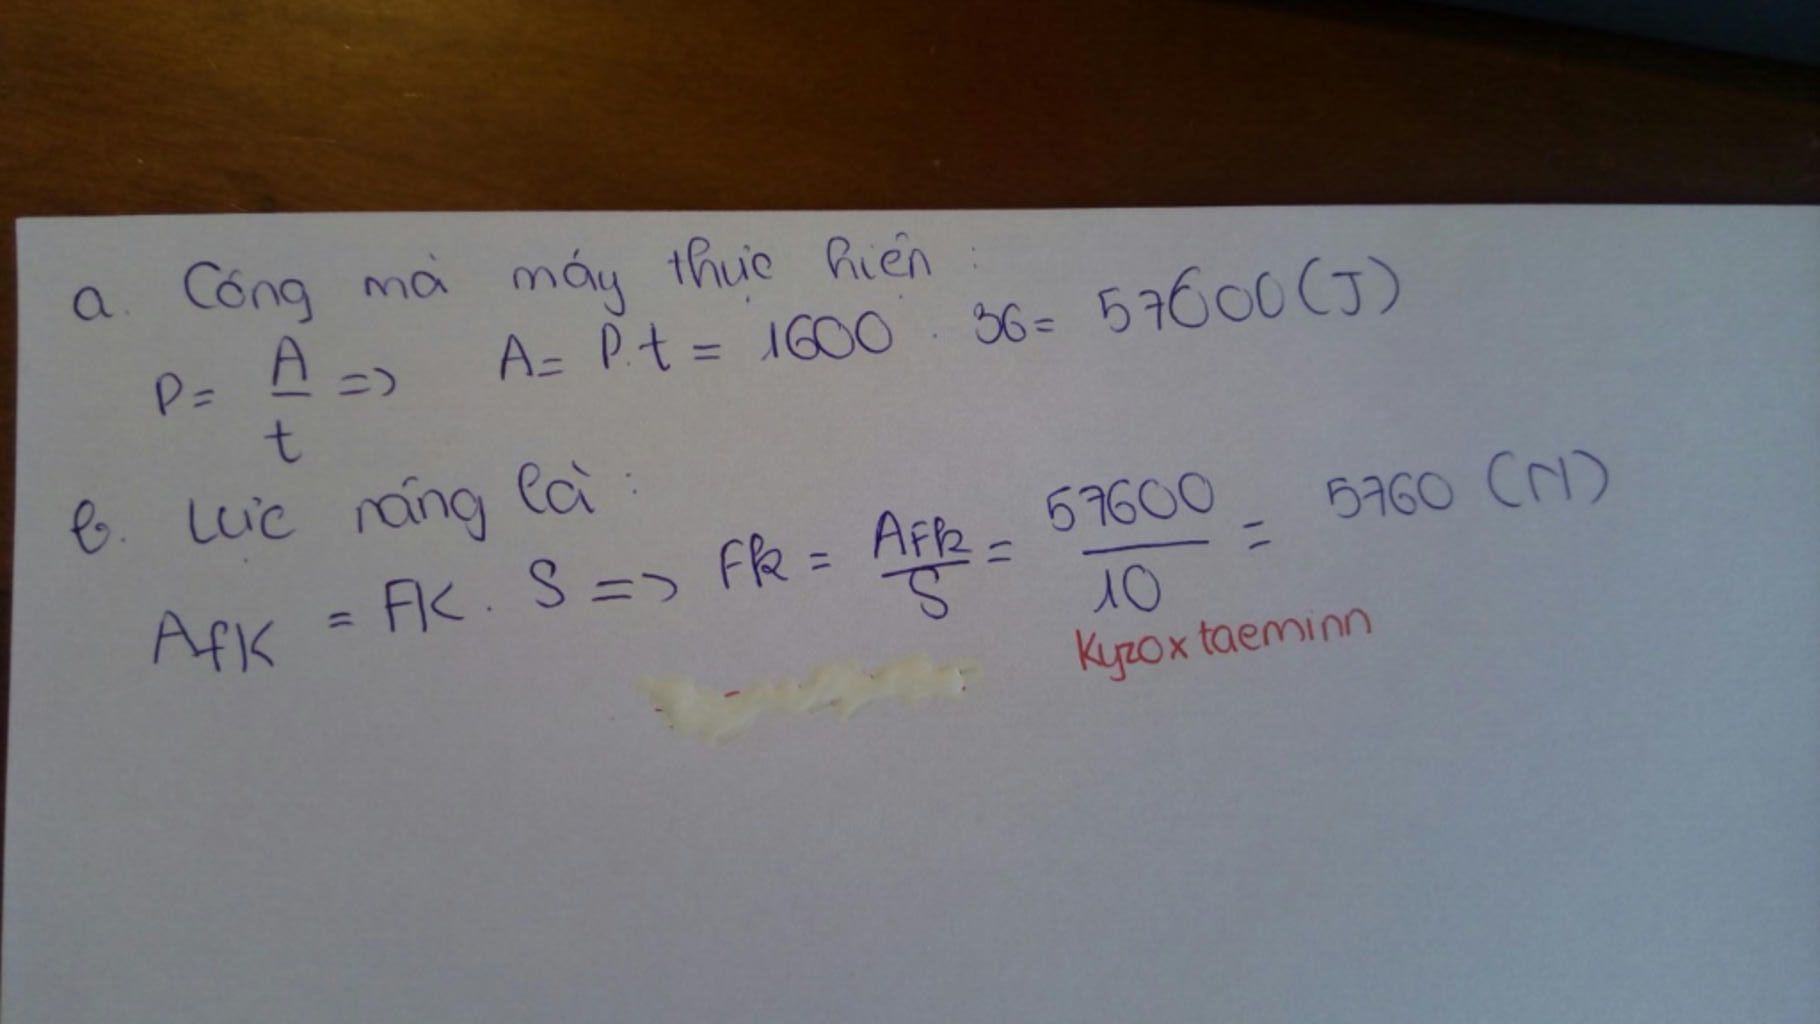 a. Công mà máy thực hiện :
P = A/t => A = P.t = 1600 . 36 = 57600 (J)
b. Lực nâng là :
AFK = FK . S => Fk = AFk/S = 57600/10 = 5760 (N)
Kyzoxtaeminn